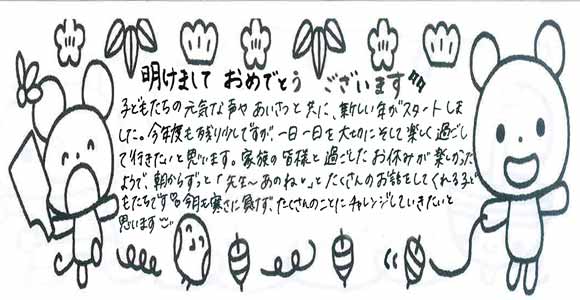 明けまして おめでとう ございます
子どもたちの元気な声やあいさつと共に、新しい年がスタートしま
した。今年度も残り少しですが、一日一日を大切にそして楽しく過ごし
て行きたいと思います。家族の皆様と過ごしたお休みが楽しかった
ようで、朝からずっと「先生〜あのね」とたくさんのお話をしてくれる子ど
もたちです 今月も寒さに負けず、たくさんのことにチャレンジしていきたいと
思います